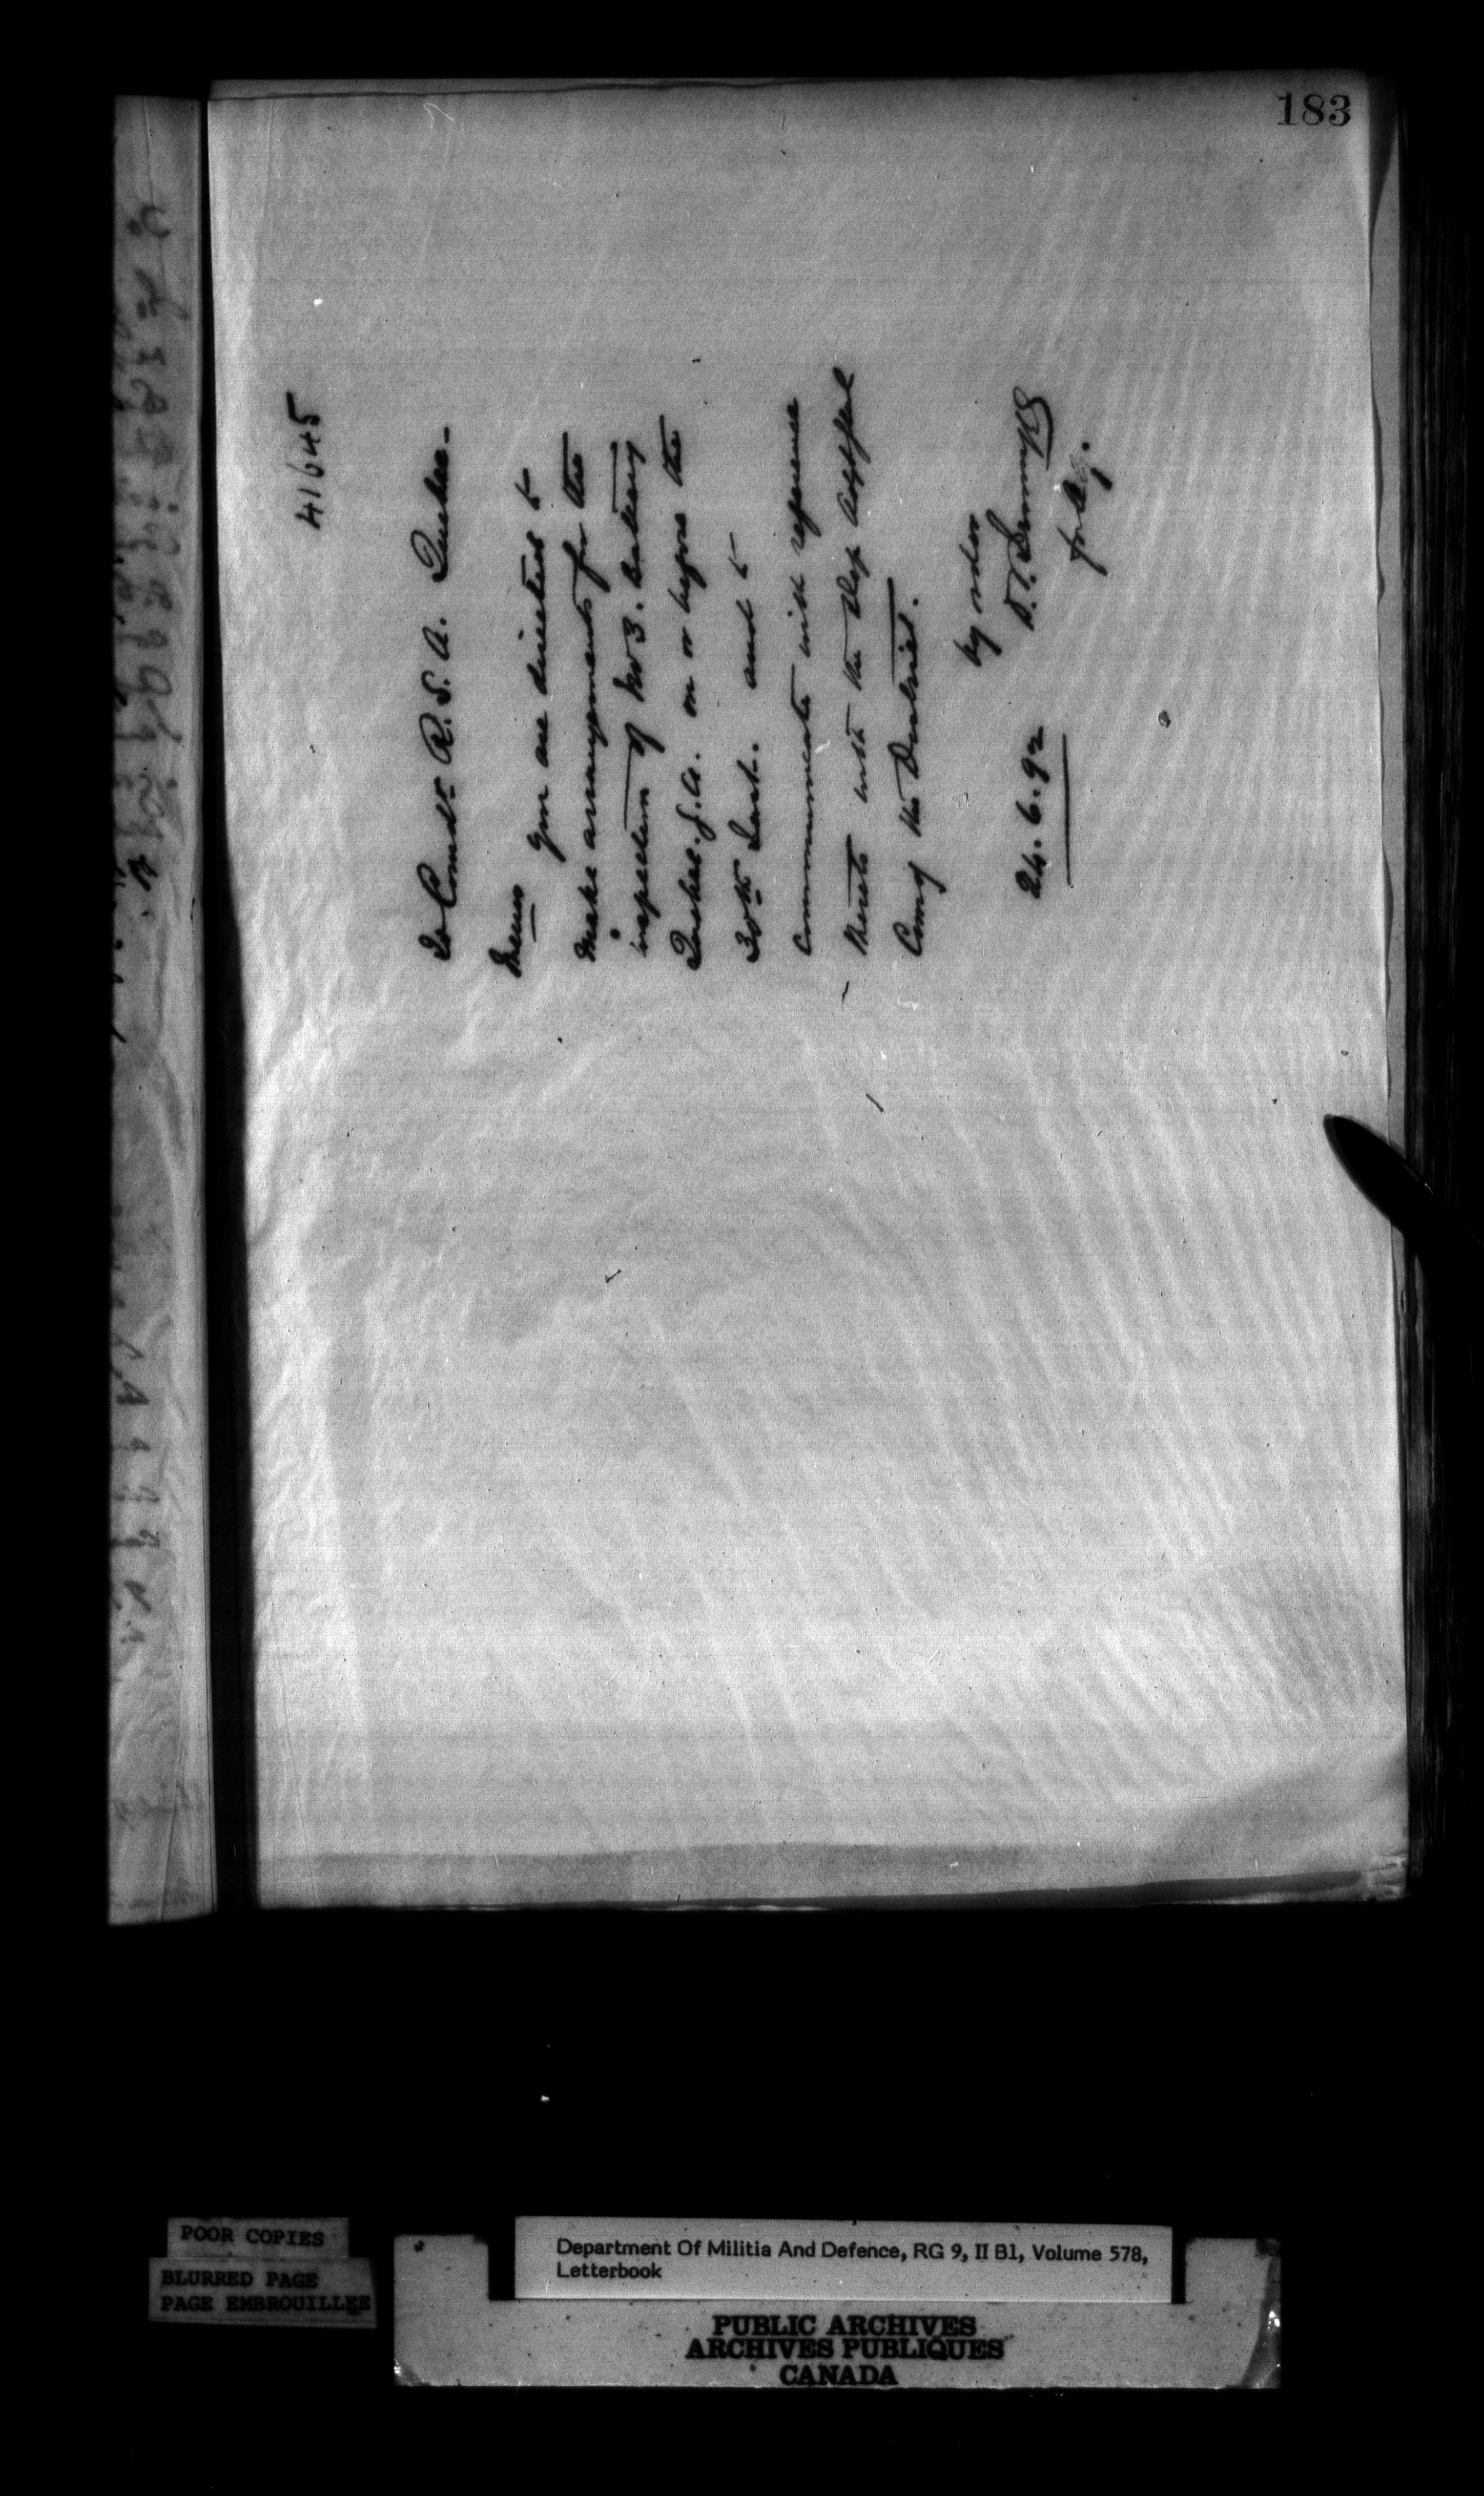 183
41645
To Comdt R.S.A. Quebec-
Memo
you are directed to
make arrangements for the
inspection of No 3. Battery
Quebec. G.A. on or before the
30th Inst. and to
communicate with reference
thereto with the Dep Adjt Genl
Comg the District.
by order
24.6.92
for
POOR COPIES
BLURRED PAGE
PAGE EMBROUILLEE
Department Of Militia And Defence, RG 9, II B1, Volume 578,
Letterbook
PUBLIC ARCHIVES
ARCHIVES PUBLIQUES
CANADA